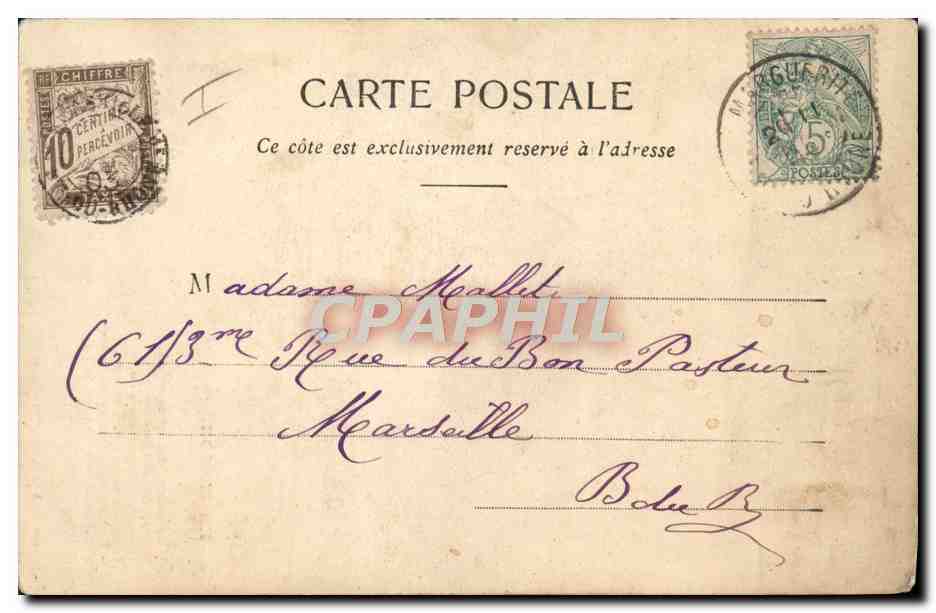 CHIFFRE
10 CENTIMES
PERCEVOIR
CARTE POSTALE
Ce côte est exclusivement reservé à l'adresse
5c
POSTES
Madame Mallet
CPAPHIL
(61) 3me Rue du Bon Pasteur
Marseille
B du R